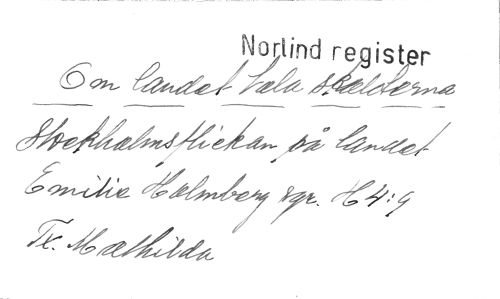 Norlind register
Om landet tala skalderna
Stockholmsflickan på landet
Emilie Holmberg sgr. H 4:9
Tx. Mathilda